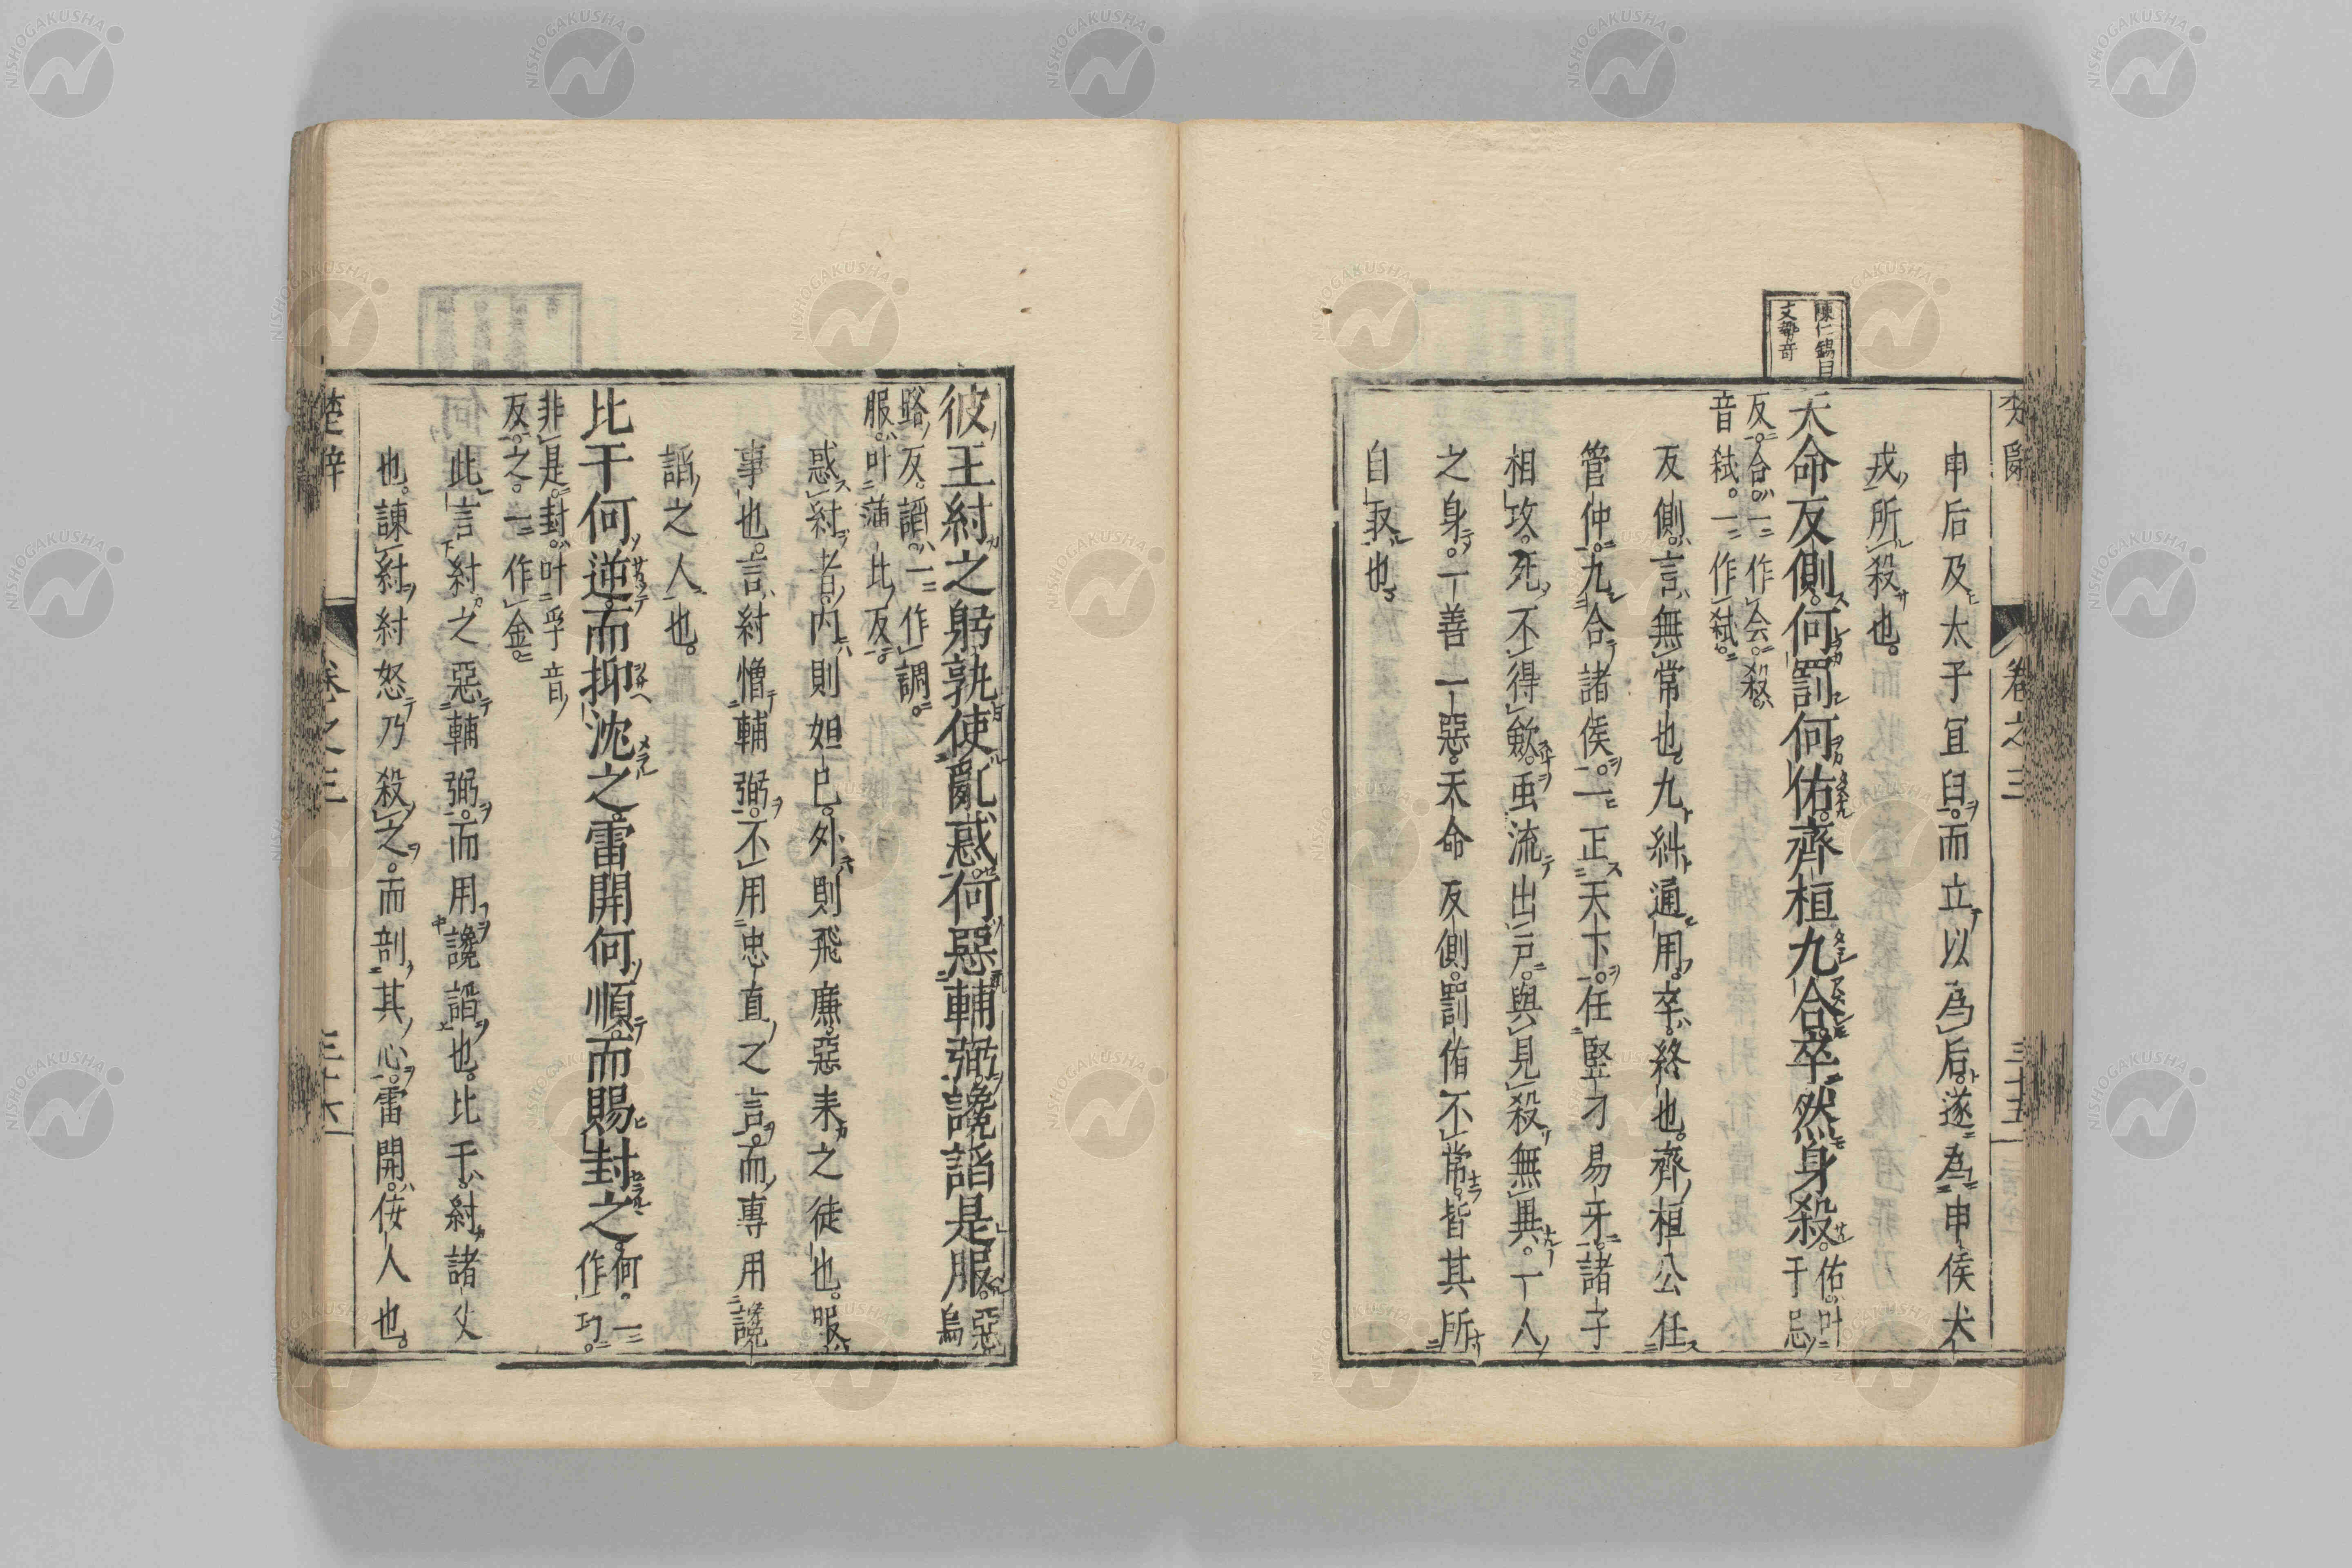 陳仁錫曰
文勢奇
申后及太子宜臼而立以為后遂為申侯犬
戎所殺也
天命反側何罰何佑齊桓九合卒然身殺佑叶
于忌
反合一作会殺
音弑一作弑
反側言無常也九糾通用卒終也齊桓公任
管仲九合諸侯一正天下任竪刁易牙諸子
相攻死不得歛虫流出戶與見殺無異一人
之身一善一惡天命反側罰佑不常皆其所
自取也
卷之三
三十五
彼王紂之躬孰使亂惑何惡輔弼讒諂是服惡
烏
路反諂一作調
服叶蒲北反
惑紂者內則妲已外則飛廉惡来之徒也服
事也言紂憎輔弼不用忠直之言而專用讒
諂之人也
比干何逆而抑沈之雷開何順而賜封之何一
作巧
非是封叶孚音
反之一作金
此言紂之惡輔弼而用讒諂也比干紂諸父
也諫紂紂怒乃殺之而剖其心雷開佞人也
楚辭
卷之三
三十六
NISHOGAKUSHA